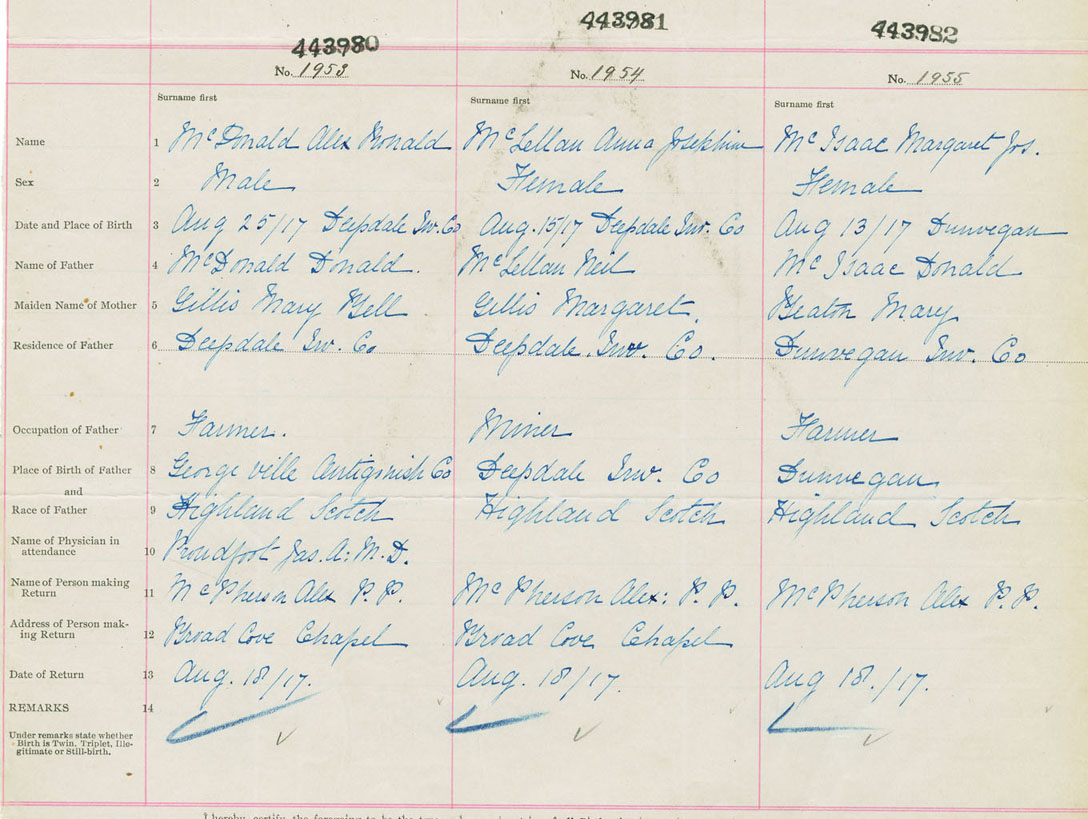 443980 443981 443982
No. 1953 No. 1954 No. 1955
Surname first Surname first Surname first
Name 1 McDonald Alex Ronald McLellan Anna Josephine McIsaac Margaret Jos.
Sex 2 Male Female Female
Date and Place of Birth 3 Aug 25/17 Deepdale Inv. Co Aug. 15/17 Deepdale Inv. Co Aug 13/17 Dunvegan
Name of Father 4 McDonald Donald. McLellan Neil McIsaac Donald
Maiden Name of Mother 5 Gillis Mary Bell Gillis Margaret. Beaton Mary
Residence of Father 6 Deepdale Inv. Co Deepdale. Inv. Co. Dunvegan Inv. Co
Occupation of Father 7 Farmer. Miner Farmer
Place of Birth of Father 8 George ville Antigonish Co Deepdale Inv. Co Dunvegan
and
Race of Father 9 Highland Scotch Highland Scotch Highland Scotch
Name of Physician in
attendance 10 Proudfoot Jas. A. M. D.
Name of Person making
Return 11 McPherson Alex P. P. McPherson Alex: P. P. McPherson Alex P. P.
Address of Person mak-
ing Return 12 Broad Cove Chapel Broad Cove Chapel
Date of Return 13 Aug. 18/17. Aug. 18/17. Aug 18./17.
REMARKS 14
Under remarks state whether
Birth is Twin, Triplet, Ille-
gitimate or Still-birth.
I hereby certify the foregoing to be the